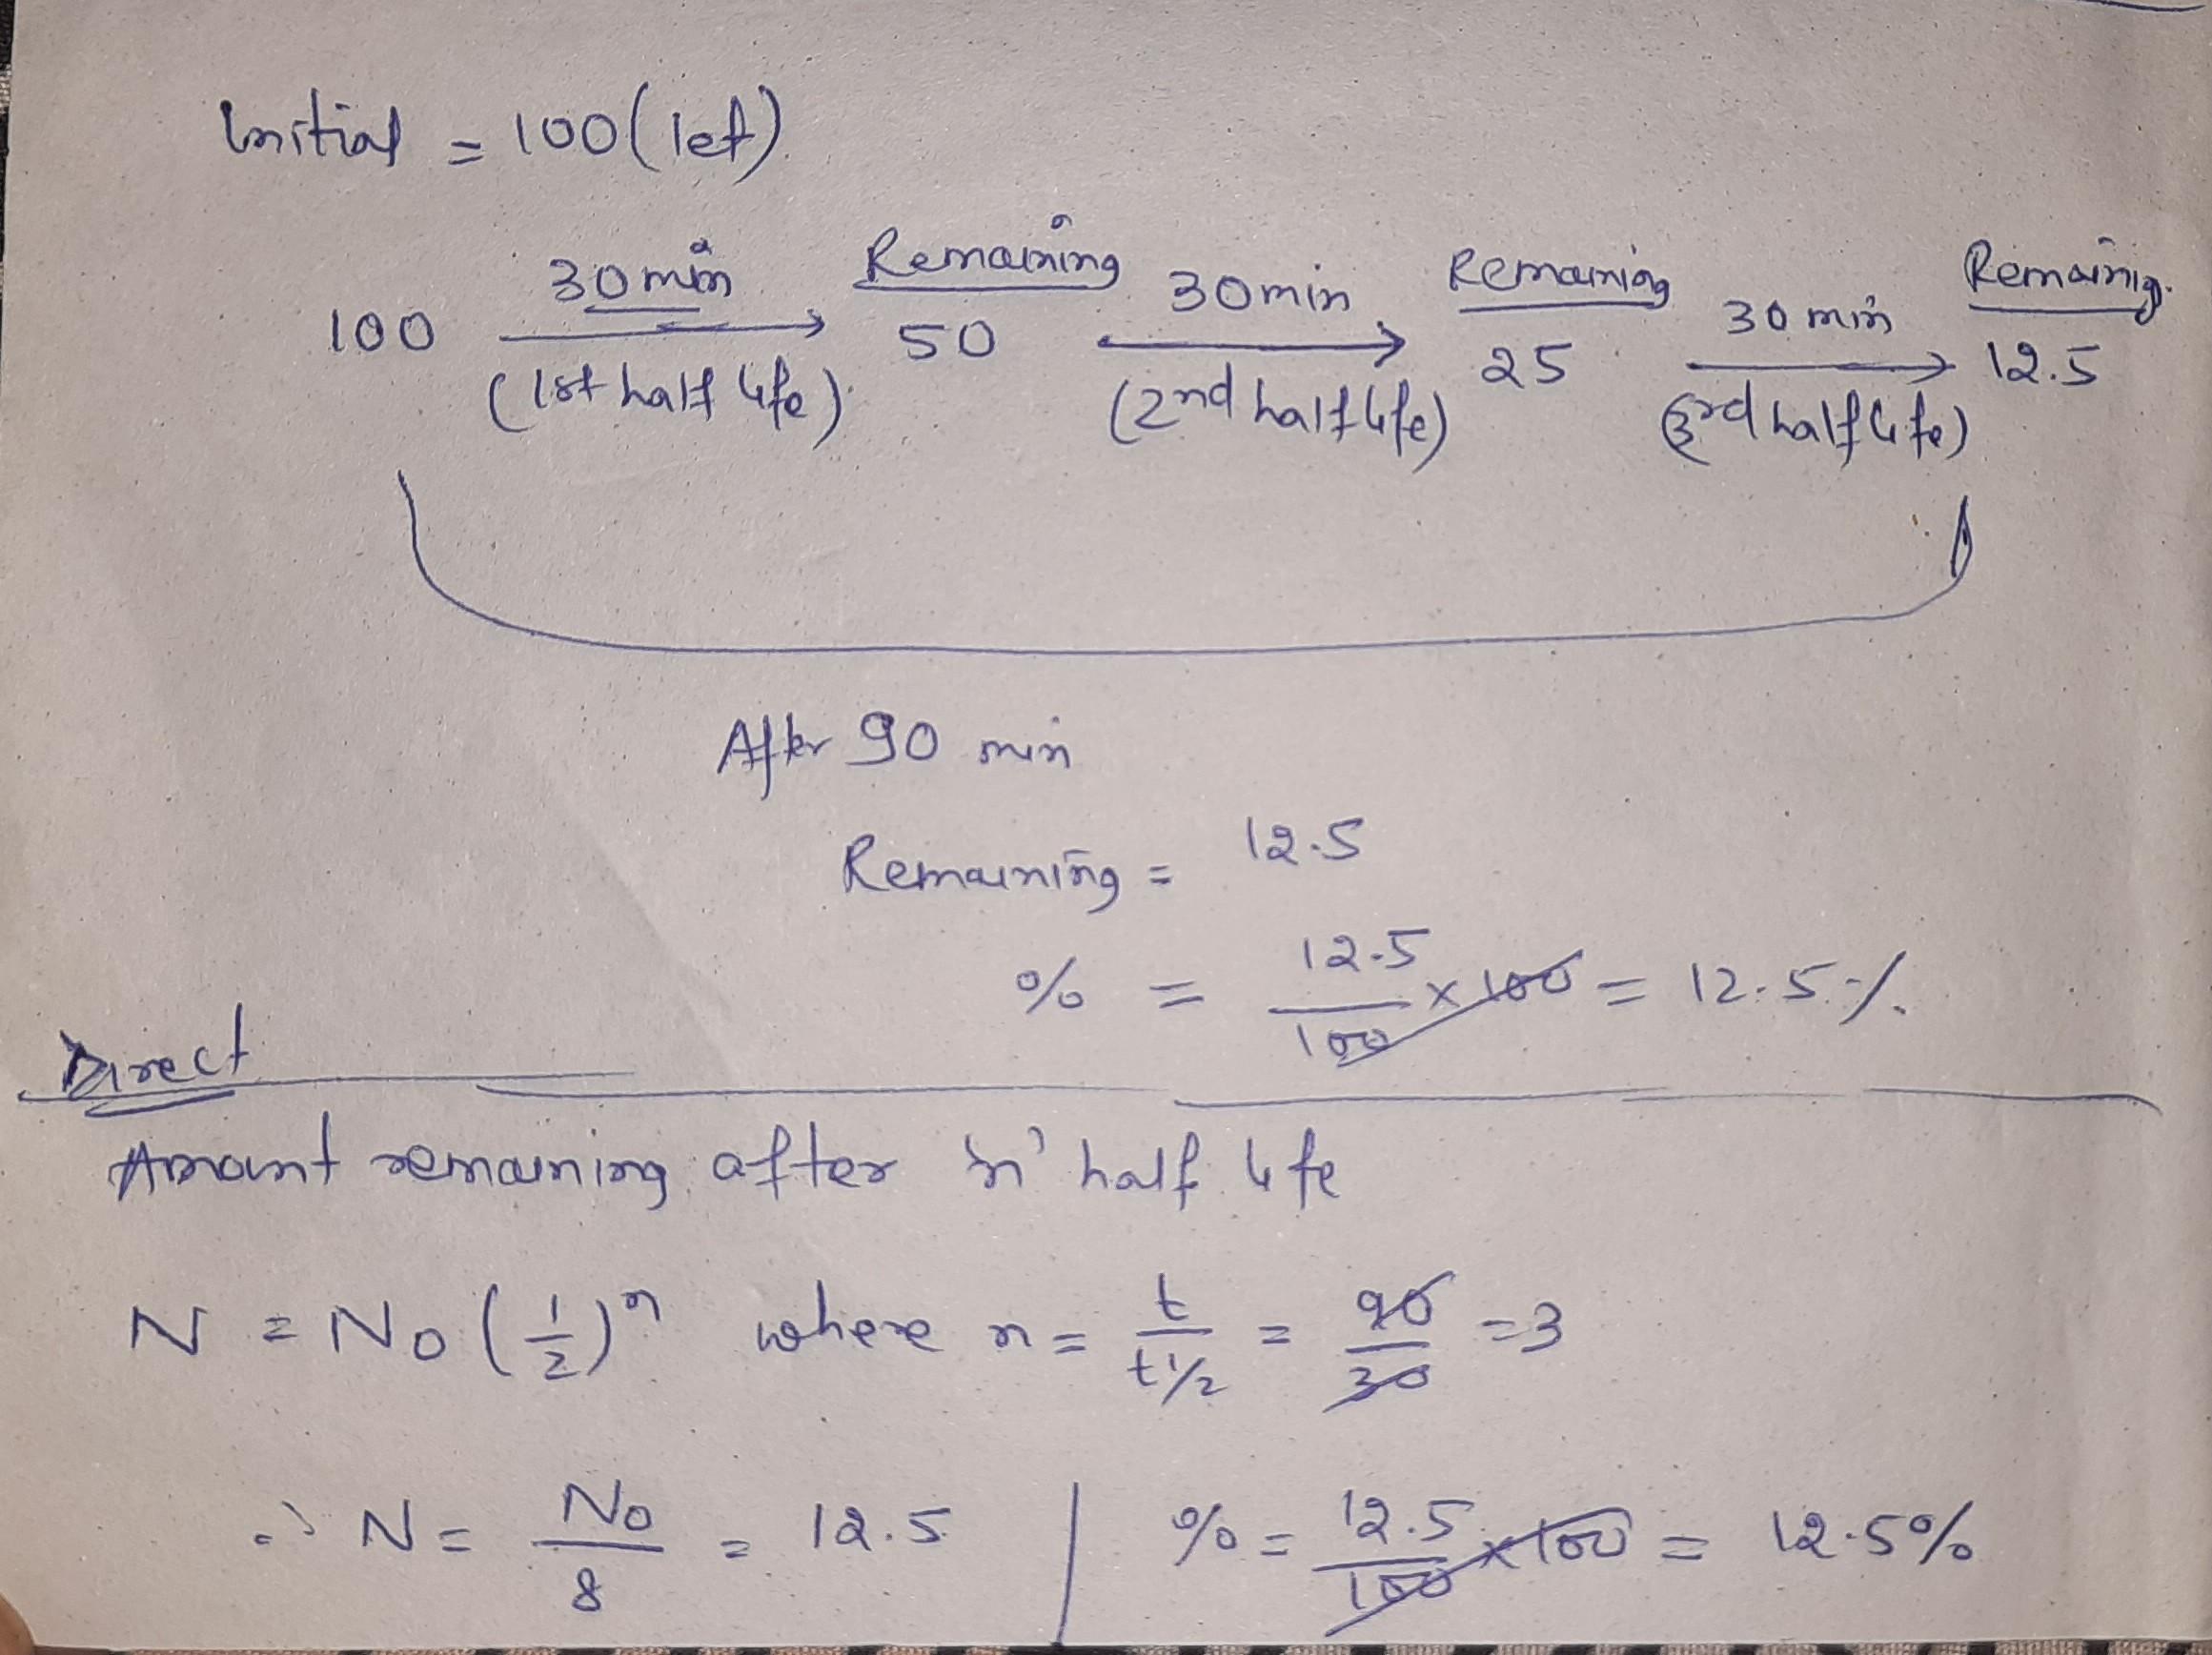 Initial = 100 (let)
100 30 min (1st half life) → Remaining 50 30 min (2nd half life) → Remaining 25 30 min (3rd half life) → Remainig. 12.5
After 90 min
Remaining = 12.5
% = 12.5/100 × 100 = 12.5 %
Direct
Amount remaining after 'n' half life
N = No (1/2)^n where n = t/t1/2 = 90/30 = 3
∴ N = No/8 = 12.5 | % = 12.5/100 × 100 = 12.5%